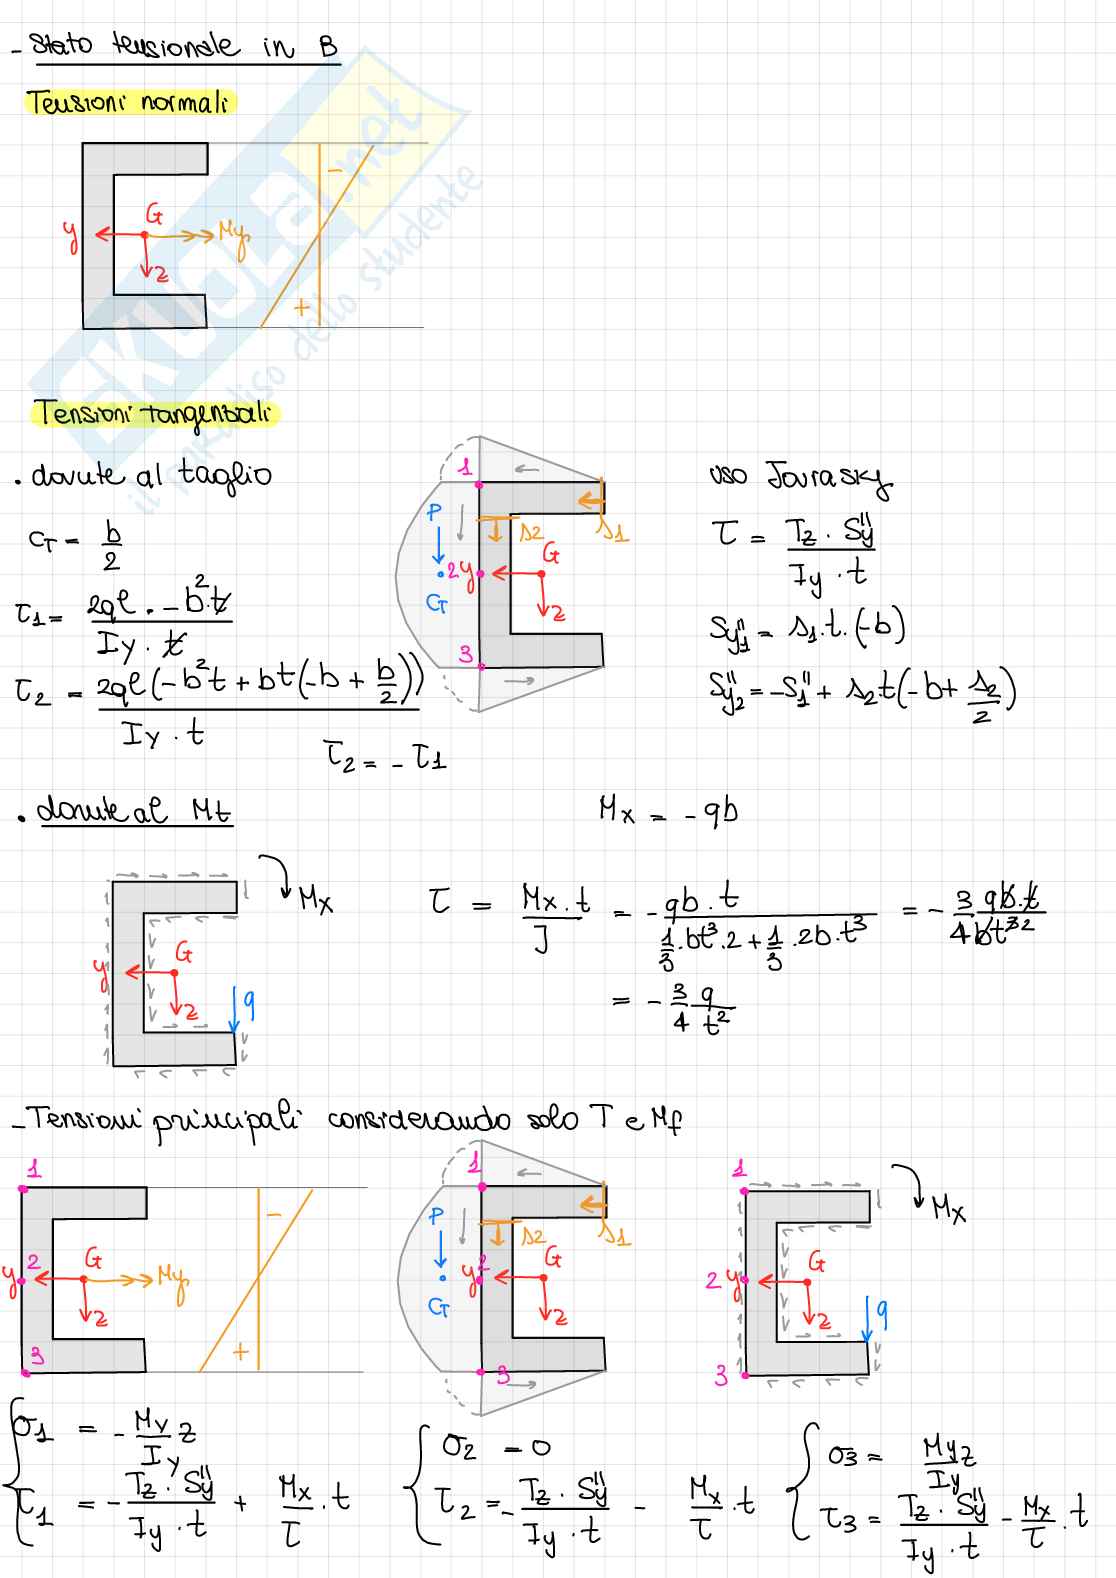 - Stato tensionale in B
Tensioni normali
-
y G My
z
+
Tensioni tangenziali
. dovute al taglio
CT = b/2
τ1 = 2qℓ · -b²·t / Iy · t
τ2 = 2qℓ(-b²t + bt(-b + b/2)) / Iy · t
τ2 = - τ1
1
P
s2
s1
2 y G
CT
z
3
uso Jourasky
τ = Tz · Sy'' / Iy · t
Sy1'' = s1·t·(-b)
Sy2'' = -S1'' + s2·t(-b + s2/2)
. dovute al Mt
Mx = - qb
Mx
y G
z
q
τ = Mx · t / J = - qb · t / 1/3·bt³·2 + 1/3·2b·t³ = - 3/4 qb·t / bt³²
= - 3/4 q/t²
- Tensioni principali considerando solo T e Mf
1
-
2
y G My
z
+
3
1
P
s2
s1
2
y G
CT
z
3
1
Mx
2 y G
z
q
3
σ1 = - My/Iy z
τ1 = - Tz · Sy'' / Iy · t + Mx/τ · t
σ2 = 0
τ2 = - Tz · Sy'' / Iy · t - Mx/τ · t
σ3 = Myz/Iy
τ3 = Tz · Sy'' / Iy · t - Mx/τ · t
SKUOLA.net
il paradiso dello studente